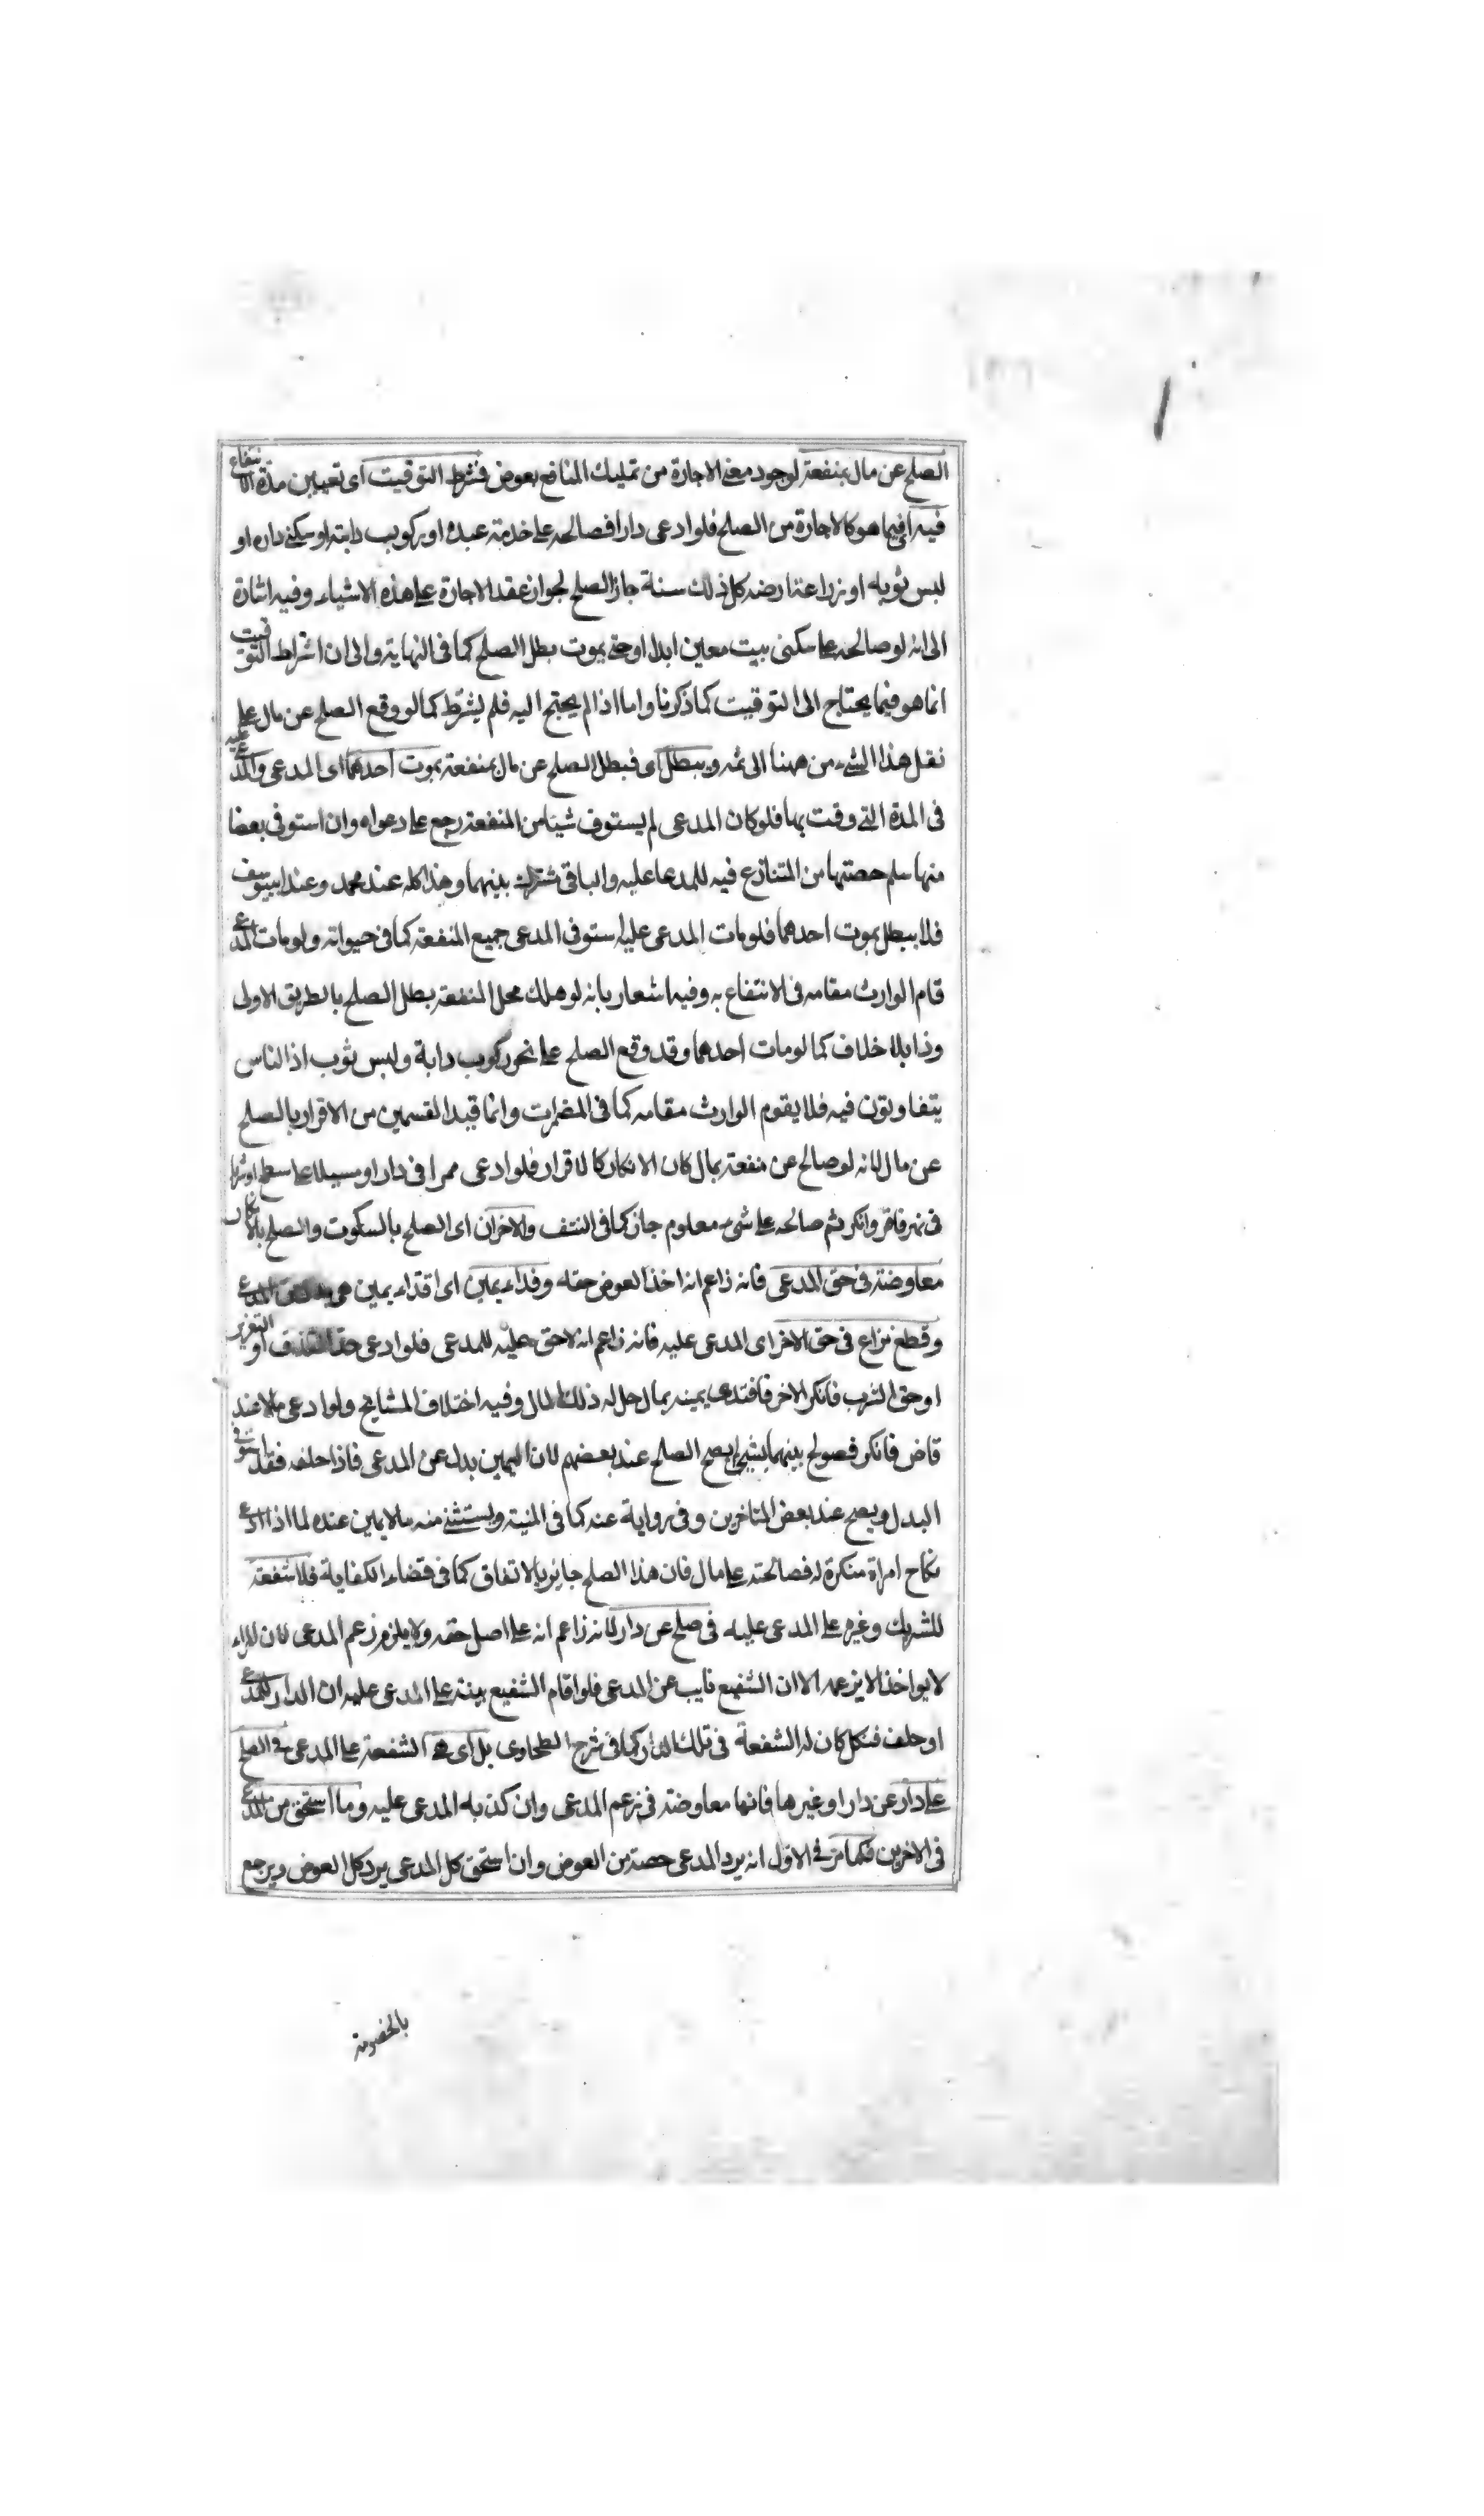 الصلح عن مال بمنفعة لوجود معنى الاجارة من تمليك المنافع بعوض فشرط التوقيت اى تعيين مدة الانتفاع
فيه اى فيما هو كالاجارة من الصلح فلو ادعى دارا فصالحه على خدمة عبده او ركوب دابته او سكنى داره او
لبس ثوبه او زراعة ارضه كل ذلك سنة جاز الصلح لجواز عقد الاجارة على هذه الاشياء وفيه اشارة
الى انه لو صالحه على سكنى بيت معين ابدا او حتى يموت بطل الصلح كما فى النهاية والى ان اشتراط التوقيت
انما هو فيما يحتاج الى التوقيت كما ذكرنا واما اذا لم يحتج اليه فلم يشترط كما لو وقع الصلح عن مال على
نقل هذا الشىء من ههنا الى ثمه ويبطل اى فبطل الصلح عن مال بمنفعة بموت احدهما اى المدعى والمدعى عليه
فى المدة التى وقت بها فلو كان المدعى لم يستوف شيئا من المنفعة رجع على دعواه وان استوفى بعضا
منها سلم حصتها من المتنازع فيه للمدعا عليه والباقى مشترك بينهما وهذا كله عند محمد وعند ابييوسف
فلا يبطل بموت احدهما فلو مات المدعى عليه استوفى المدعى جميع المنفعة كما فى حيواته ولو مات المدعى
قام الوارث مقامه فى الانتفاع به وفيه اشعار بانه لو هلك محل المنفعة بطل الصلح بالطريق الاولى
وذا بلا خلاف كما لو مات احدهما وقد وقع الصلح على نحو ركوب دابة ولبس ثوب اذ الناس
يتفاوتون فيه فلا يقوم الوارث مقامه كما فى المضمرات وانما قيد القسمين من الاقرار بالصلح
عن مال لانه لو صالح عن منفعة بمال كان الانكار كالاقرار فلو ادعى ممرا فى دار او مسيلا على سطح او شربا
فى نهر فاقر وانكر ثم صالحه على شىء معلوم جاز كما فى النتف والاخران اى الصلح بالسكوت والصلح بالانكار
معاوضة فى حق المدعى فانه زاعم انه اخذ العوض حقه وفداء يمين اى افتداء يمين هى حق المدعى
وقطع نزاع فى حق الاخر اى المدعى عليه فانه زاعم انه لا حق عليه للمدعى فلو ادعى حق القذف او التعزير
او حق الشرب فانكر الاخر فافتدى يمينه بمال حل له ذلك المال وفيه اختلاف المشايخ ولو ادعى مالا عند
قاض فانكر فصولح بينهما بشىء لم يصح الصلح عند بعضهم لان اليمين بدل عن المدعى فاذا حلفه فقد استوفى
البدل ويصح عند بعض المتاخرين وفى رواية عنه كما فى المنية ويستثنى منه ما لا يمين عنده لما اذا ادعى
نكاح امراة منكرة له فصالحته على مال فان هذا الصلح جايز بالاتفاق كما فى قضاء الكفاية فلا شفعة
للشريك وغيره على المدعى عليه فى صلح عن دار لانه زاعم انه على اصل حقه ولا يلزم زعم المدعى لان المرء
لا يواخذ الا بزعمه الا ان الشفيع نايب عن المدعى فلو اقام الشفيع بينة على المدعى عليه ان الدار للمدعى
او حلف فنكل كان له الشفعة فى تلك الدار كما فى شرح الطحاوى بل اى هى الشفعة على المدعى فى الصلح
على دار عن دار او غيرها فانها معاوضة فى زعم المدعى وان كذبه المدعى عليه وما استحق من المدعى
فى الاخرين فكما مر فى الاول انه يرد المدعى حصته من العوض وان استحق كل المدعى يرد كل العوض ويرجع
بالخصومة